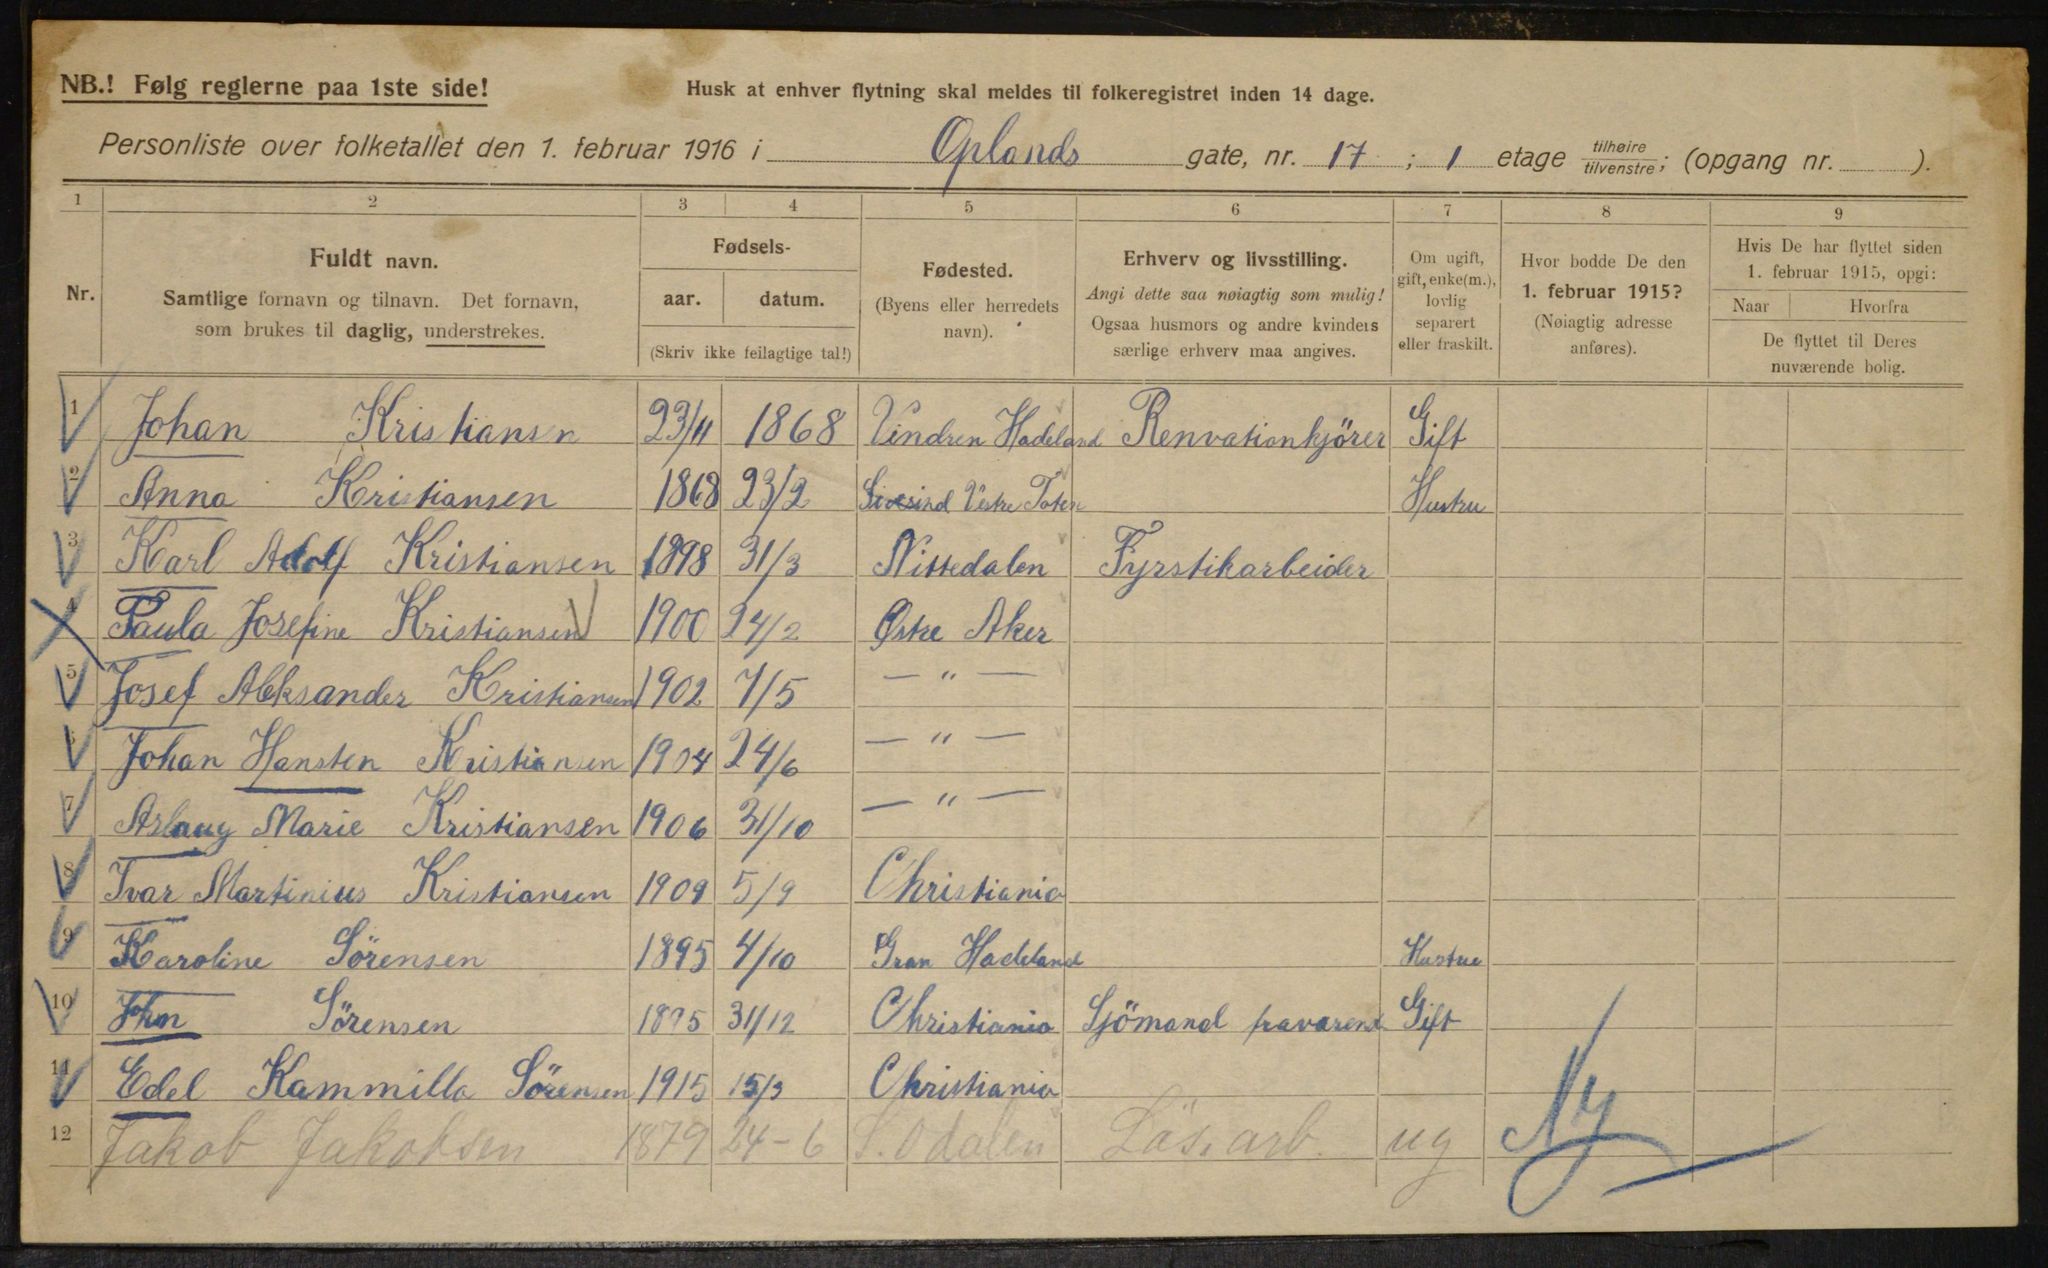 NB.! Følg reglerne paa 1ste side!
Husk at enhver flytning skal meldes til folkeregistret inden 14 dage.
Personliste over folketallet den 1. februar 1916 i Oplands gate, nr. 17 ; 1 etage tilhøire/tilvenstre; (opgang nr. ).
1 2 3 4 5 6 7 8 9
Nr.
Fuldt navn.
Samtlige fornavn og tilnavn. Det fornavn,
som brukes til daglig, understrekes.
Fødsels-
aar. datum.
(Skriv ikke feilagtige tal!)
Fødested.
(Byens eller herredets
navn).
Erhverv og livsstilling.
Angi dette saa nøiagtig som mulig!
Ogsaa husmors og andre kvinders
særlige erhverv maa angives.
Om ugift,
gift, enke(m.),
lovlig
separert
eller fraskilt.
Hvor bodde De den
1. februar 1915?
(Nøiagtig adresse
anføres).
Hvis De har flyttet siden
1. februar 1915, opgi:
Naar Hvorfra
De flyttet til Deres
nuværende bolig.
1 Johan Kristiansn 23/11 1868 Vindren Hadeland Renvationkjörer Gift
2 Anna Kristiansen 1868 23/2 Sivesind Vestre Toten Hustru
3 Karl Adolf Kristiansen 1898 31/3 Nittedalen Fyrstikarbeider
4 Paula Josefine Kristiansen 1900 24/2 Østre Aker
5 Josef Aleksander Kristiansen 1902 7/5 — " —
6 Johan Hansten Kristiansen 1904 24/6 — " —
7 Aslaug Marie Kristiansen 1906 31/10 — " —
8 Ivar Martinius Kristiansen 1909 5/9 Christiania
9 Karoline Sörensen 1895 4/10 Gran Hadeland Hustru
10 John Sörensen 1895 31/12 Christiania Sjömand fraværend Gift
11 Edel Kammilla Sörensen 1915 15/3 Christiania
12 Jakob Jakobsen 1879 24-6 S. Odalen Lösarb. ug
Ny